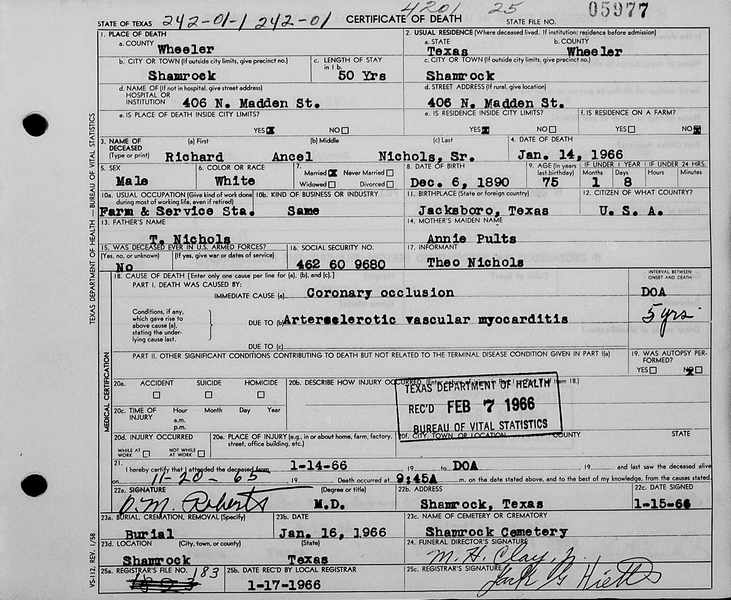 4201 25
STATE OF TEXAS 242-01-1 242-01 CERTIFICATE OF DEATH STATE FILE NO. 05977
1. PLACE OF DEATH 2. USUAL RESIDENCE (Where deceased lived. If institution: residence before admission)
a. COUNTY a. STATE b. COUNTY
Wheeler Texas Wheeler
b. CITY OR TOWN (If outside city limits, give precinct no.) c. LENGTH OF STAY in 1 b. c. CITY OR TOWN (If outside city limits, give precinct no.)
Shamrock 50 Yrs Shamrock
d. NAME OF (If not in hospital, give street address) HOSPITAL OR INSTITUTION d. STREET ADDRESS (If rural, give location)
406 N. Madden St. 406 N. Madden St.
e. IS PLACE OF DEATH INSIDE CITY LIMITS? e. IS RESIDENCE INSIDE CITY LIMITS? f. IS RESIDENCE ON A FARM?
YES NO YES NO YES NO
3. NAME OF DECEASED (Type or print) (a) First (b) Middle (c) Last 4. DATE OF DEATH
Richard Ancel Nichols, Sr. Jan. 14, 1966
5. SEX 6. COLOR OR RACE 7. Married Never Married Widowed Divorced 8. DATE OF BIRTH 9. AGE (In years last birthday) IF UNDER 1 YEAR IF UNDER 24 HRS.
Months Days Hours Minutes
Male White Dec. 6, 1890 75 1 8
10a. USUAL OCCUPATION (Give kind of work done during most of working life, even if retired) 10b. KIND OF BUSINESS OR INDUSTRY 11. BIRTHPLACE (State or foreign country) 12. CITIZEN OF WHAT COUNTRY?
Farm & Service Sta. Same Jacksboro, Texas U. S. A.
13. FATHER'S NAME 14. MOTHER'S MAIDEN NAME
T. Nichols Annie Pults
15. WAS DECEASED EVER IN U.S. ARMED FORCES? 16. SOCIAL SECURITY NO. 17. INFORMANT
(Yes, no, or unknown) (If yes, give war or dates of service)
No 462 60 9680 Theo Nichols
18. CAUSE OF DEATH [Enter only one cause per line for (a), (b), and (c).] INTERVAL BETWEEN ONSET AND DEATH
PART I. DEATH WAS CAUSED BY:
IMMEDIATE CAUSE (a) Coronary occlusion DOA
Conditions, if any, which gave rise to above cause (a), stating the underlying cause last.
DUE TO (b) Artersclerotic vascular myocarditis 5 yrs
DUE TO (c)
PART II. OTHER SIGNIFICANT CONDITIONS CONTRIBUTING TO DEATH BUT NOT RELATED TO THE TERMINAL DISEASE CONDITION GIVEN IN PART I(a) 19. WAS AUTOPSY PERFORMED?
YES NO
20a. ACCIDENT SUICIDE HOMICIDE 20b. DESCRIBE HOW INJURY OCCURRED.
TEXAS DEPARTMENT OF HEALTH
REC'D FEB 7 1966
BUREAU OF VITAL STATISTICS
20c. TIME OF INJURY Hour Month Day Year
a.m.
p.m.
20d. INJURY OCCURRED 20e. PLACE OF INJURY (e.g., in or about home, farm, factory, street, office building, etc.) 20f. CITY, TOWN, OR LOCATION COUNTY STATE
WHILE AT WORK NOT WHILE AT WORK
21. I hereby certify that I attended the deceased from 1-14-66 19 to DOA 19 and last saw the deceased alive
11-20-65 19 Death occurred at 9:45A m. on the date stated above, and to the best of my knowledge, from the causes stated.
22a. SIGNATURE (Degree or title) 22b. ADDRESS 22c. DATE SIGNED
O. M. Roberts M.D. Shamrock, Texas 1-15-66
23a. BURIAL, CREMATION, REMOVAL (Specify) 23b. DATE 23c. NAME OF CEMETERY OR CREMATORY
Burial Jan. 16, 1966 Shamrock Cemetery
23d. LOCATION (City, town, or county) (State) 24. FUNERAL DIRECTOR'S SIGNATURE
Shamrock Texas M. H. Clay, Jr.
25a. REGISTRAR'S FILE NO. 25b. DATE REC'D BY LOCAL REGISTRAR 25c. REGISTRAR'S SIGNATURE
183 1-17-1966
TEXAS DEPARTMENT OF HEALTH — BUREAU OF VITAL STATISTICS
MEDICAL CERTIFICATION
VS-112, REV. 1/58